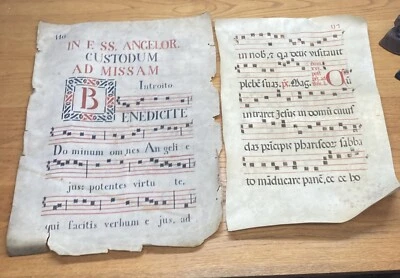 110
IN F SS. ANGELOR.
CUSTODUM
AD MISSAM
Introito
BENEDICITE
Do minum om nes An geli e
jus: potentes virtu te,
qui facitis verbum e jus, ad
117
in nob, & q̃a deus visitavit
plebẽ suã. Mag. O
intraret Jesus in domũ cuius
das p̃ncipis phariseor̃ sabba
to mãducare panẽ, &